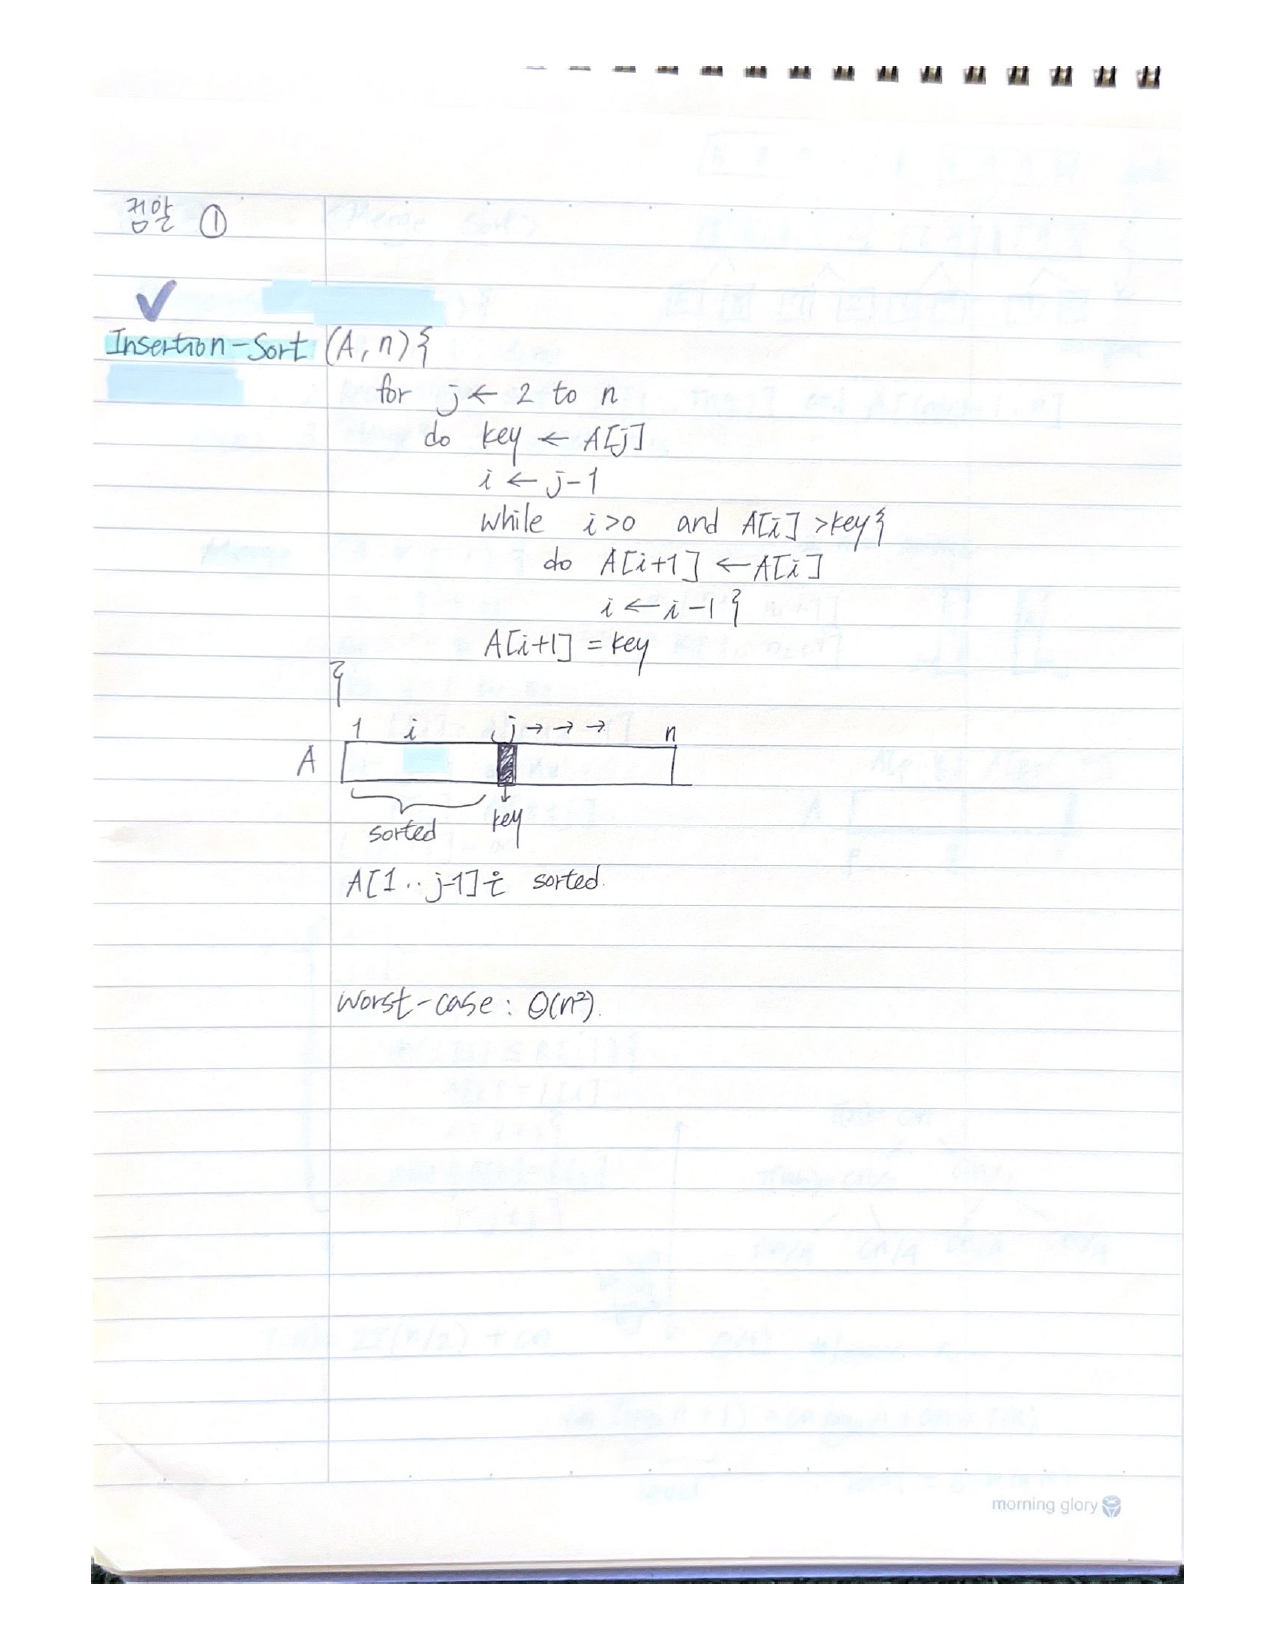 컴알 ①
Insertion-Sort (A, n) {
for j ← 2 to n
do key ← A[j]
i ← j-1
while i>0 and A[i] >key {
do A[i+1] ← A[i]
i ← i-1 }
A[i+1] = key
}
1 i j → → → n
A
sorted key
A[1..j-1]는 sorted.
worst-case : Θ(n²).
morning glory